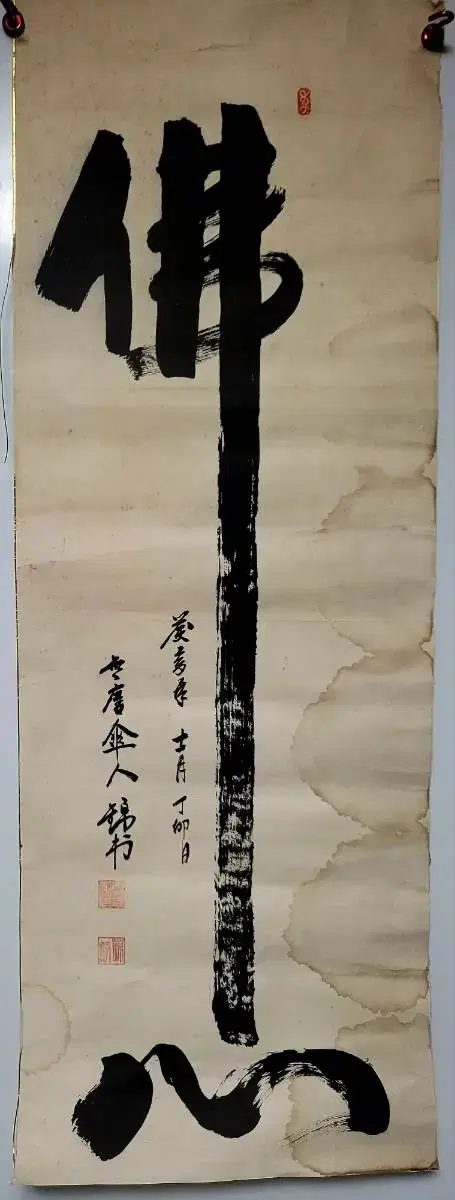 佛心
癸亥年 十一月 丁卯日
傘人 錦書